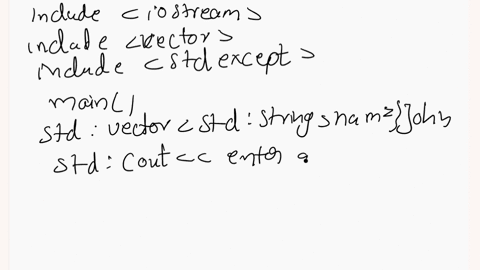 include <iostream>
include <vector>
include <stdexcept>
main()
std:vector<std:string>name{}John
std:cout<< enter a